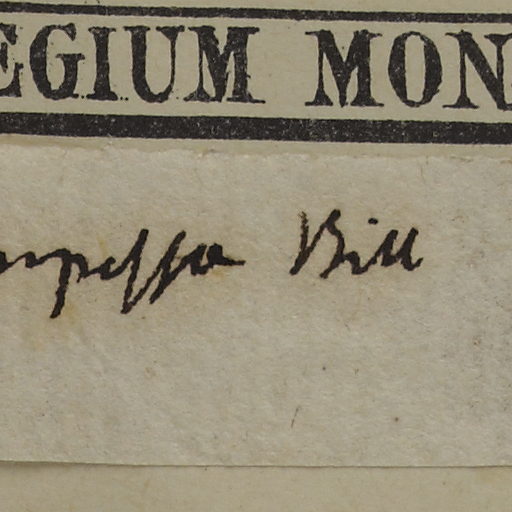 EGIUM MON
mpressa Bill